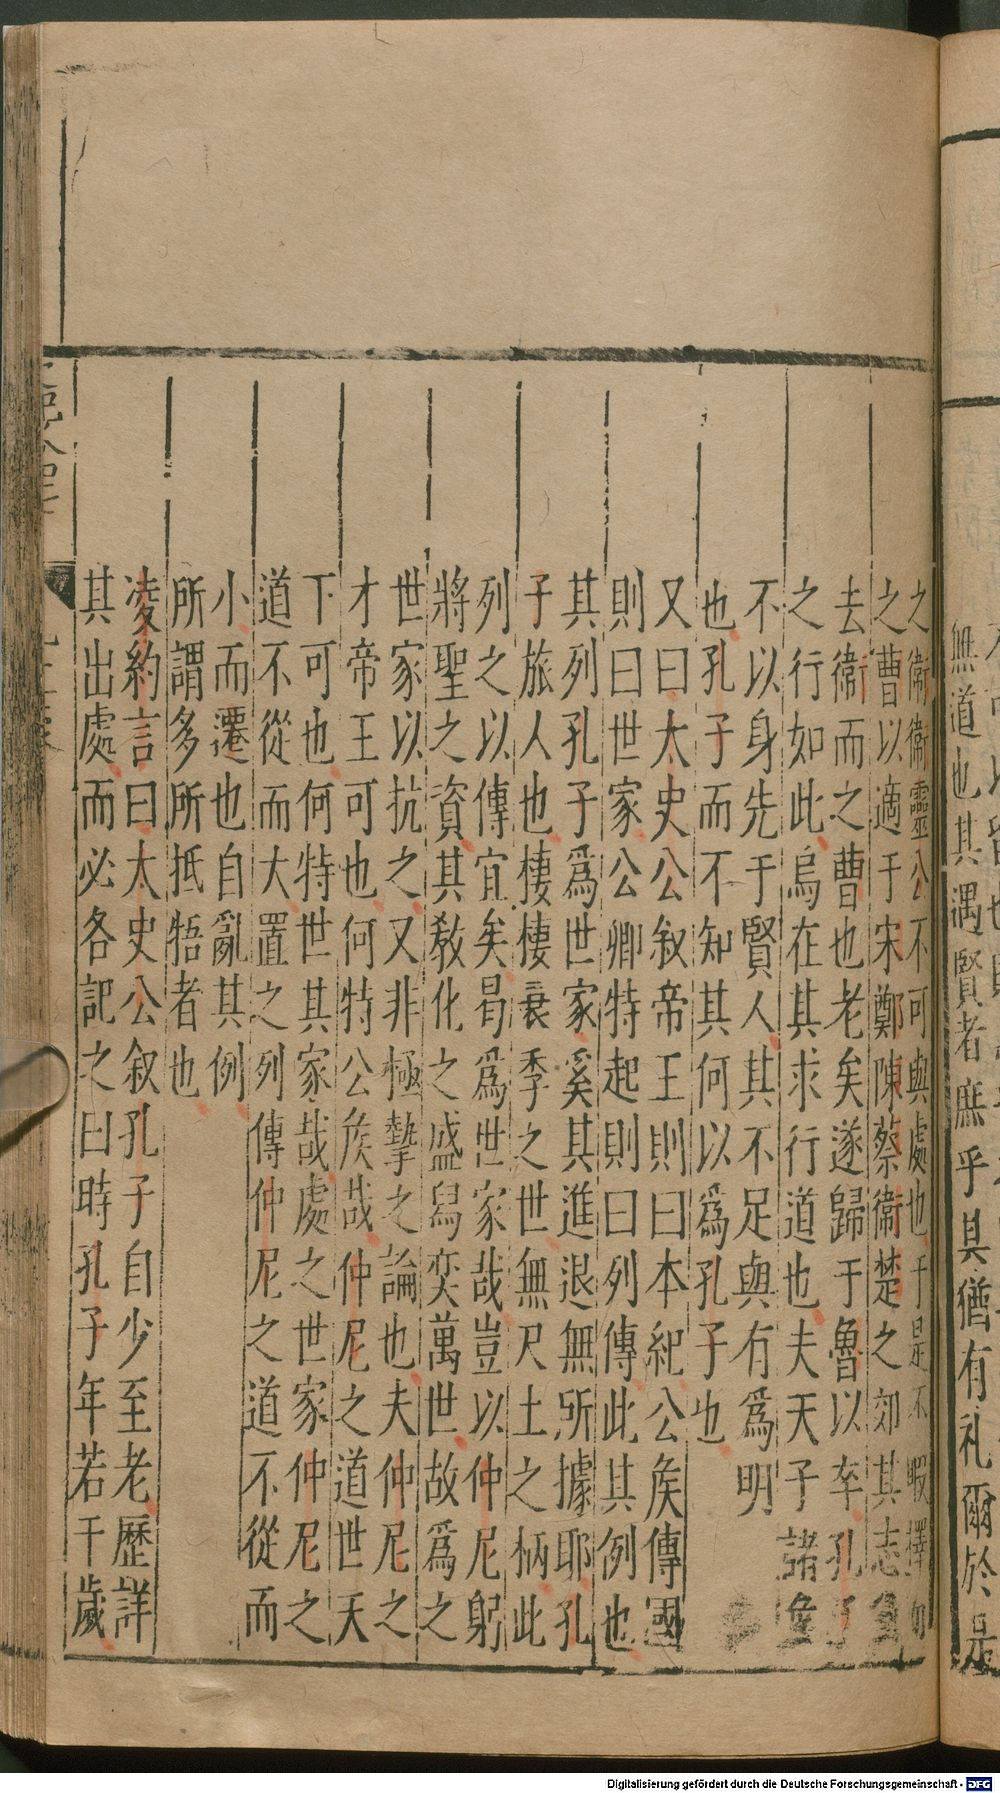 之衛衛靈公不可與處也于是不暇擇
之曹以適于宋鄭陳蔡衛楚之郊其志
去衛而之曹也老矣遂歸于魯以卒孔子
之行如此烏在其求行道也夫天子諸
不以身先于賢人其不足與有爲明
也孔子而不知其何以爲孔子也
又曰太史公叙帝王則曰本紀公侯傳國
則曰世家公卿特起則曰列傳此其例也
其列孔子爲世家奚其進退無所據耶孔
子旅人也棲棲衰季之世無尺土之柄此
列之以傳宜矣曷爲世家哉豈以仲尼躬
將聖之資其教化之盛舄奕萬世故爲之
世家以抗之又非極摯之論也夫仲尼之
才帝王可也何特公侯哉仲尼之道世天
下可也何特世其家哉處之世家仲尼之
道不從而大置之列傳仲尼之道不從而
小而遷也自亂其例
所謂多所抵牾者也
凌約言曰太史公叙孔子自少至老歷詳
其出處而必各記之曰時孔子年若干歲
無道也其遇賢者庶乎其猶有礼爾於是
Digitalisierung gefördert durch die Deutsche Forschungsgemeinschaft - DFG